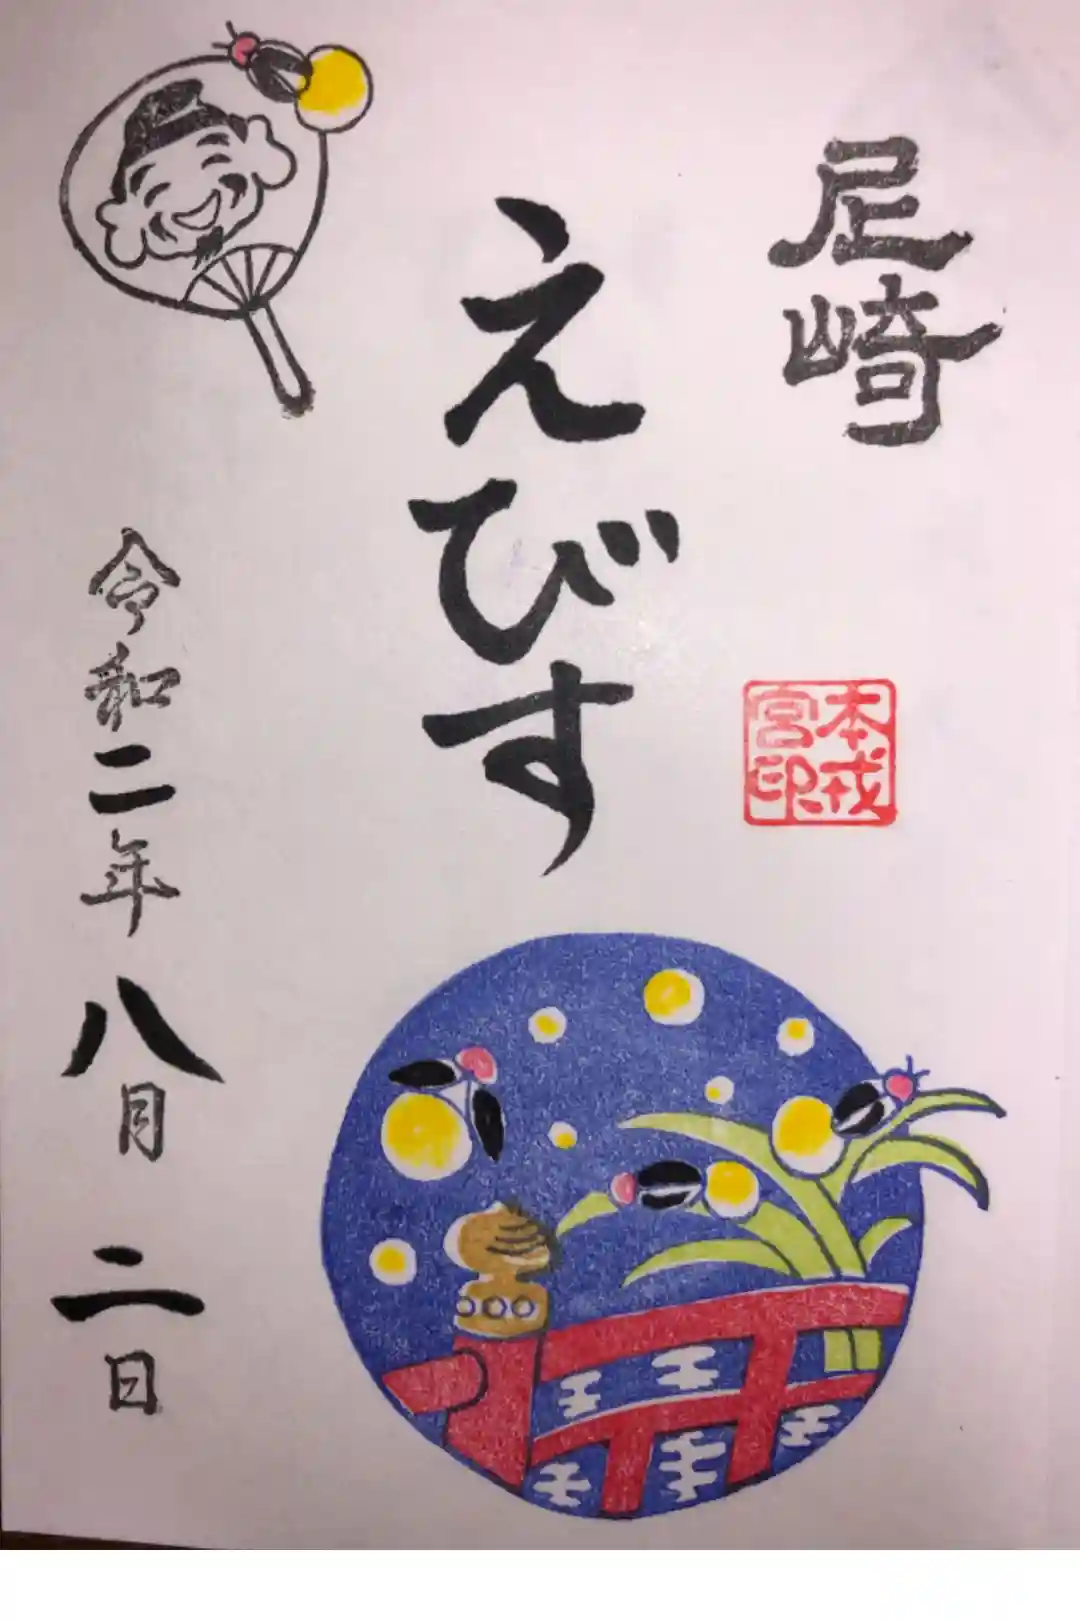 尼崎
本戎
宮印
えびす
令和二年八月二日